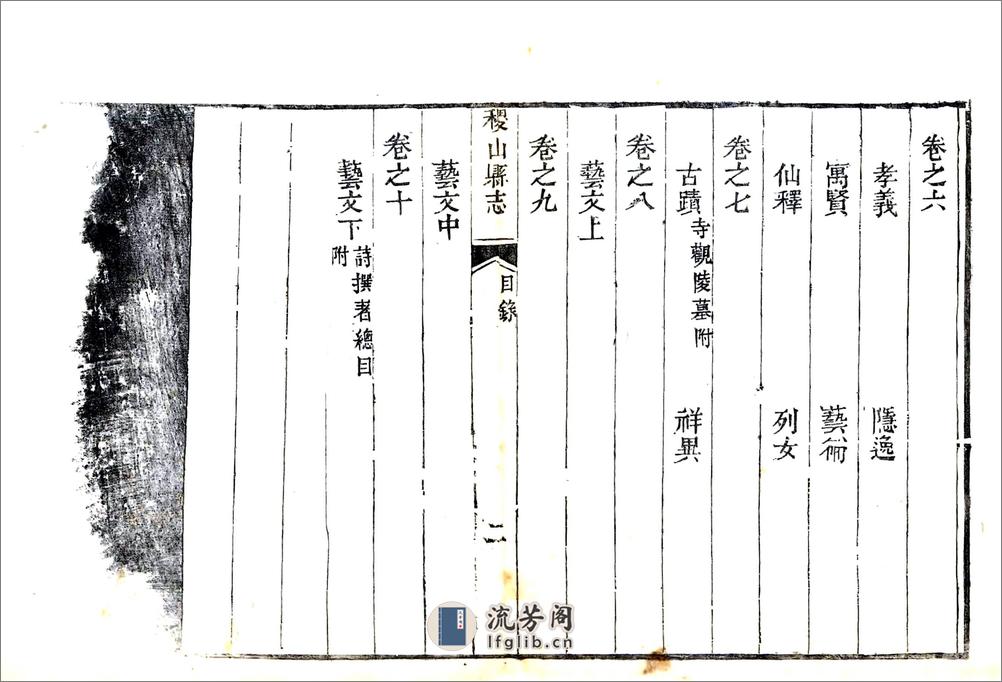 卷之六
孝義 隱逸
寓賢 藝術
仙釋 列女
卷之七
古蹟寺觀陵墓附 祥異
卷之八
藝文上
卷之九
稷山縣志 目錄 二
藝文中
卷之十
藝文下詩撰著總目附
流芳阁
lfglib.cn